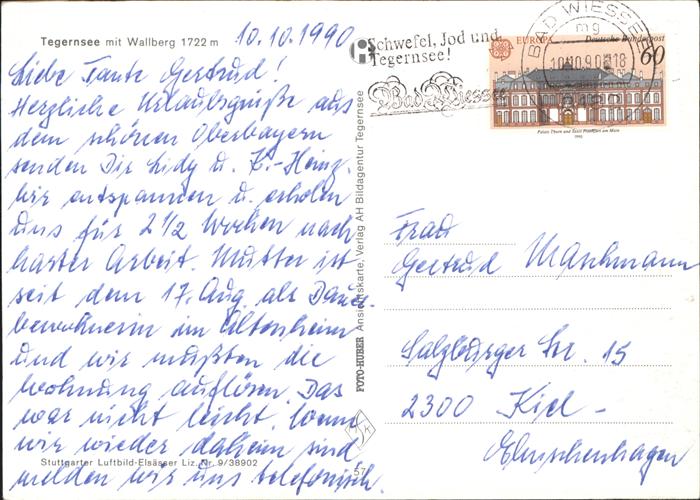 Tegernsee mit Wallberg 1722 m
10.10.1990
Liebe Tante Gertrud!
Herzliche Urlaubsgrüße aus
dem schönen Oberbayern
senden Dir Lidy u. K.-Heinz.
Wir entspannen u. erholen
uns für 2 1/2 Wochen nach
harter Arbeit. Mutter ist
seit dem 17. Aug. als Dauer-
bewohnerin im Altersheim
und wir mußten die
Wohnung auflösen. Das
war nicht leicht. Wenn
wir wieder daheim sind
melden wir uns telefonisch.
Stuttgarter Luftbild-Elsässer Liz. Nr. 9/38902
FOTO-HUBER Ansichtskarte, Verlag AH Bildagentur Tegernsee
57
Schwefel, Jod und
Tegernsee!
Bad Wiessee
BAD WIESSEE
mg
10.10.90-18
EUROPA Deutsche Bundespost
60
Palais Thurn und Taxis Frankfurt am Main
1990
Frau
Gertrud
Salzburger Str. 15
2300 Kiel-
Elmschenhagen